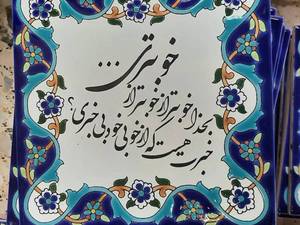 خوبتری...
بخدا خوبتر از خوبتر از خوبتری
خبرت هست که از خوبی خود بی خبری؟